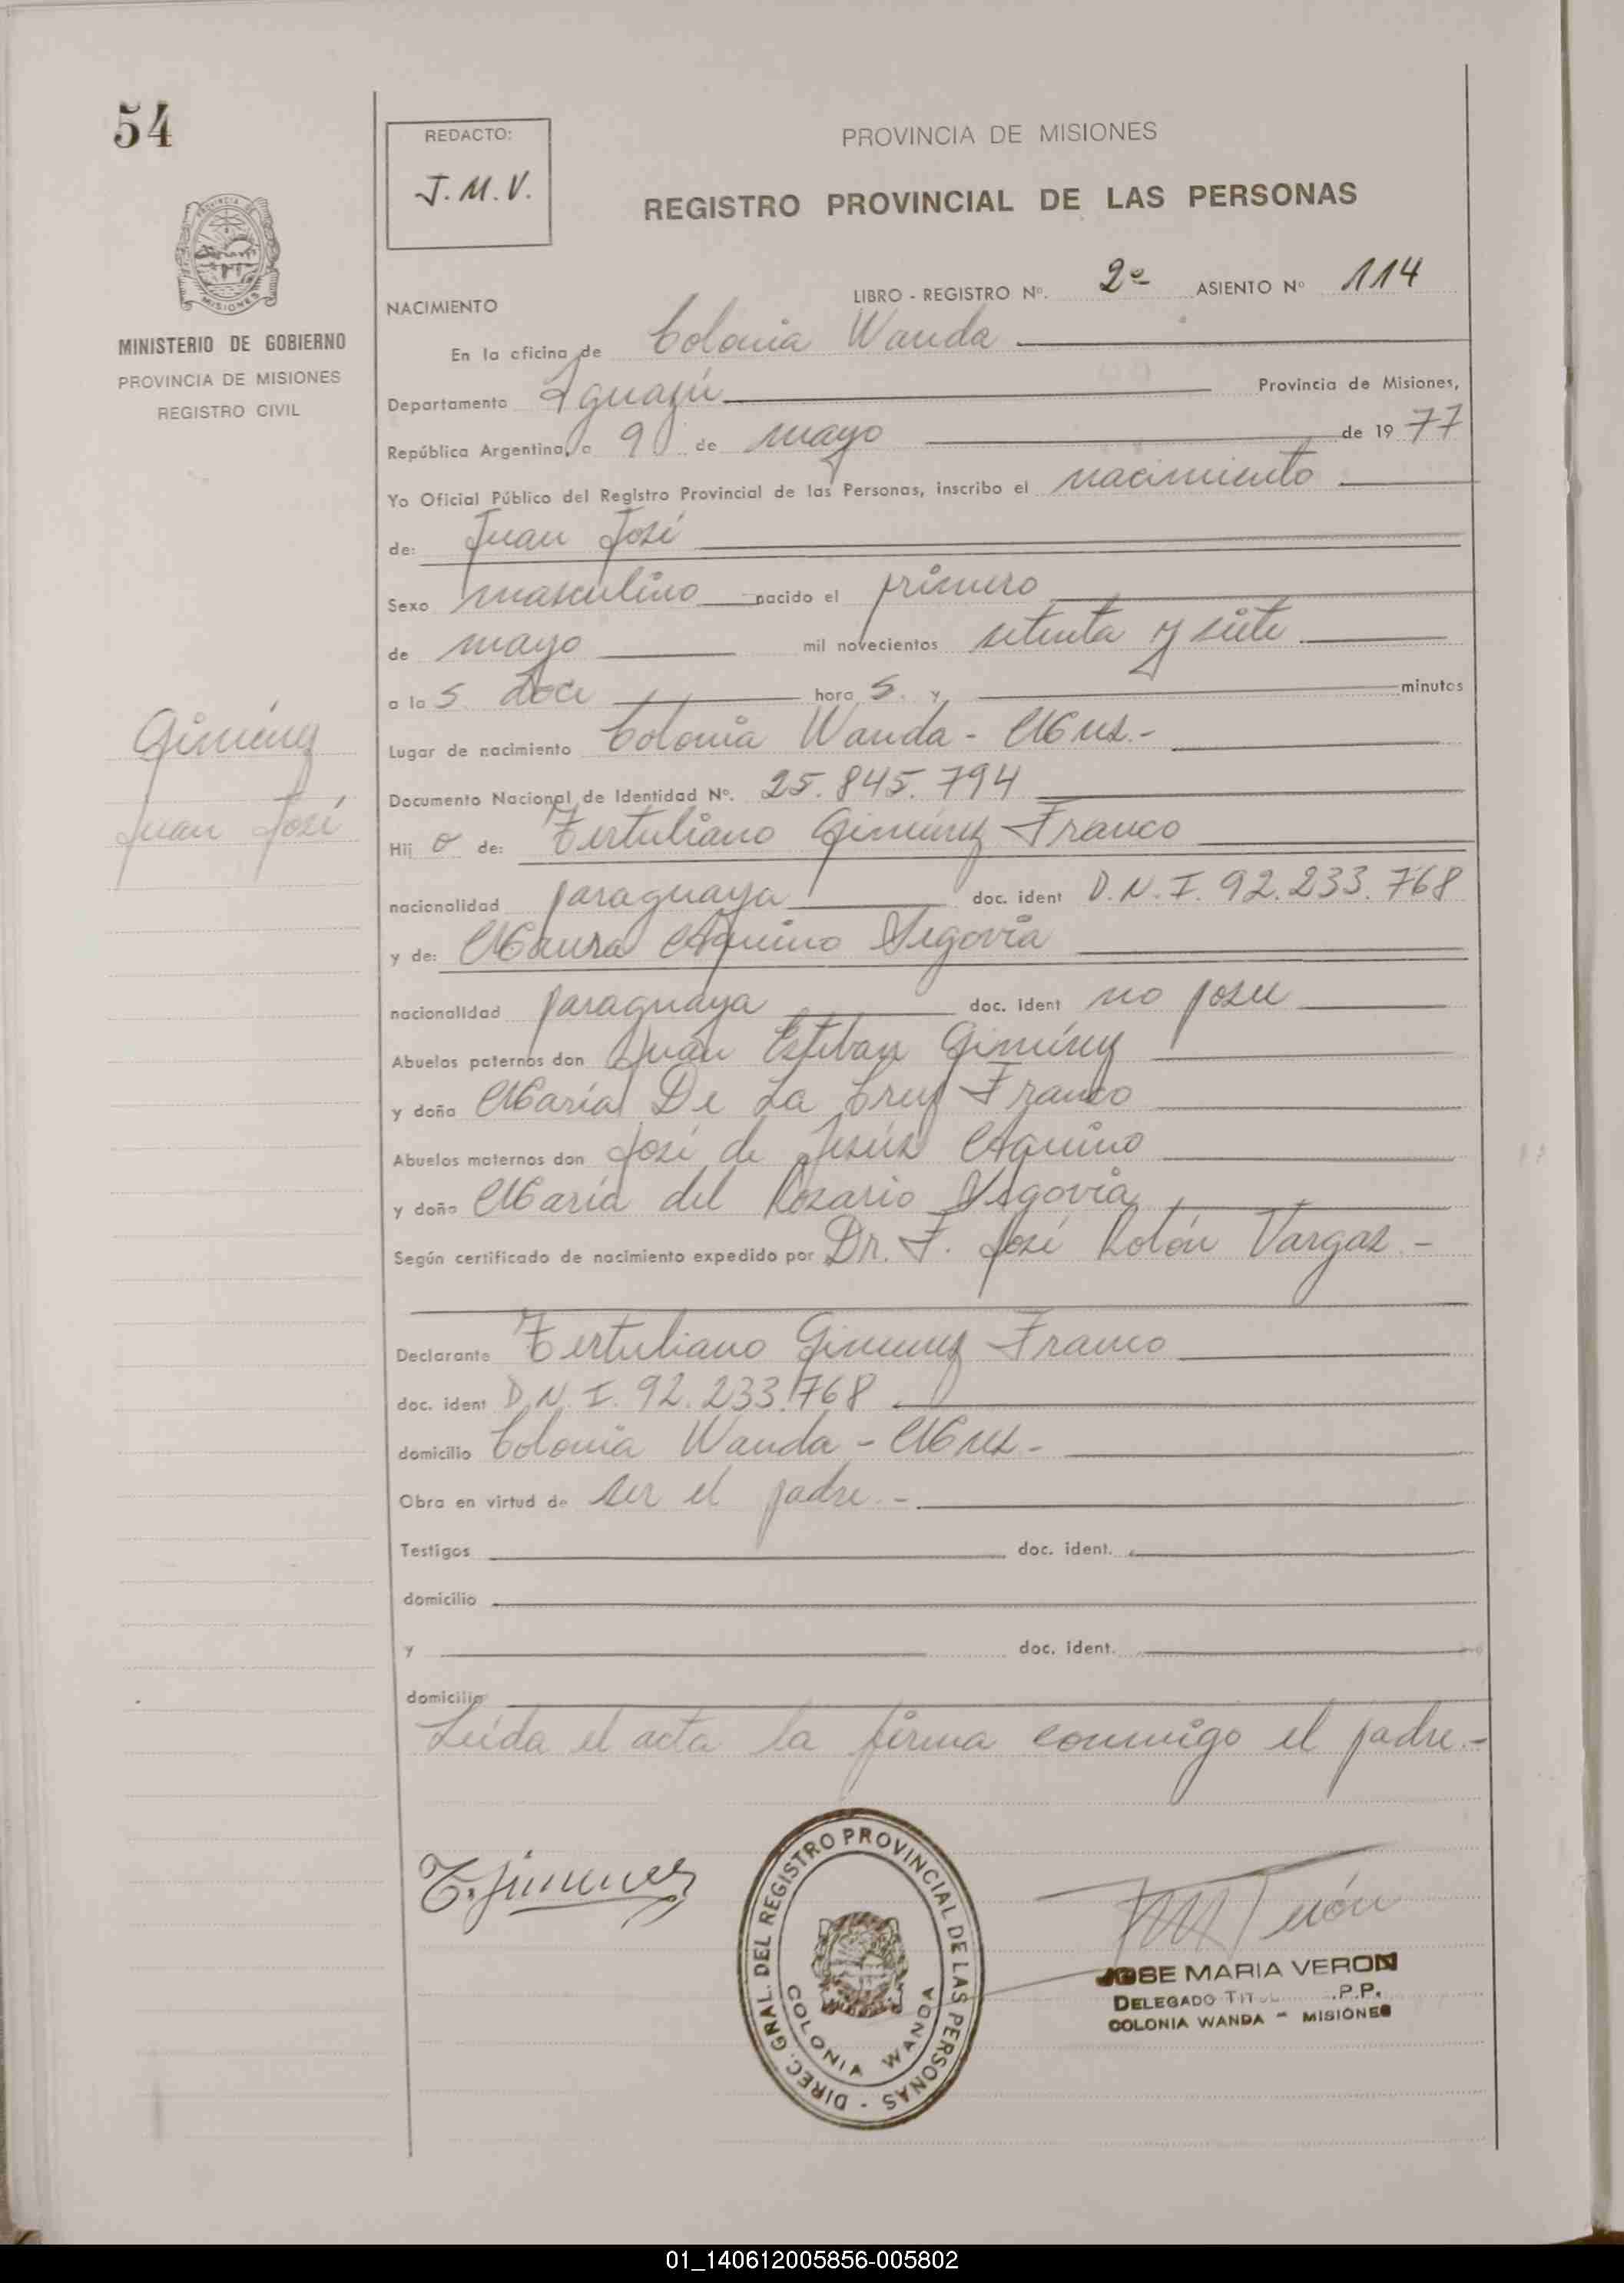 54
REDACTO:
J.M.V.
PROVINCIA DE MISIONES
REGISTRO PROVINCIAL DE LAS PERSONAS
MINISTERIO DE GOBIERNO
PROVINCIA DE MISIONES
REGISTRO CIVIL
NACIMIENTO LIBRO - REGISTRO Nº. 2º ASIENTO Nº 114
En la oficina de Colonia Wanda
Departamento Iguazú Provincia de Misiones,
República Argentina, a 9 de mayo de 1977
Yo Oficial Público del Registro Provincial de las Personas, inscribo el nacimiento
de: Juan José
Sexo masculino nacido el primero
de mayo mil novecientos setenta y siete
a las doce horas. y minutos
Lugar de nacimiento Colonia Wanda - Mnes.-
Giménez
Juan José
Documento Nacional de Identidad Nº. 25.845.794
Hijo de: Tertuliano Giménez Franco
nacionalidad paraguaya doc. ident D.N.I. 92.233.768
y de: Maura Aquino Segovia
nacionalidad paraguaya doc. ident no posee
Abuelos paternos don Juan Esteban Giménez
y doña María De La Cruz Franco
Abuelos maternos don José de Jesús Aquino
y doña María del Rosario Segovia
Según certificado de nacimiento expedido por Dr. F. José Rolón Vargas.-
Declarante Tertuliano Gimenez Franco
doc. ident D.N.I. 92.233.768
domicilio Colonia Wanda - Mnes.-
Obra en virtud de ser el padre.-
Testigos doc. ident.
domicilio
y doc. ident.
domicilio
Leída el acta la firma conmigo el padre.-
T. Jimenez
DIREC. GRAL. DEL REGISTRO PROVINCIAL DE LAS PERSONAS -
COLONIA WANDA
JOSE MARIA VERON
DELEGADO P.P.
COLONIA WANDA - MISIONES
01_140612005856-005802